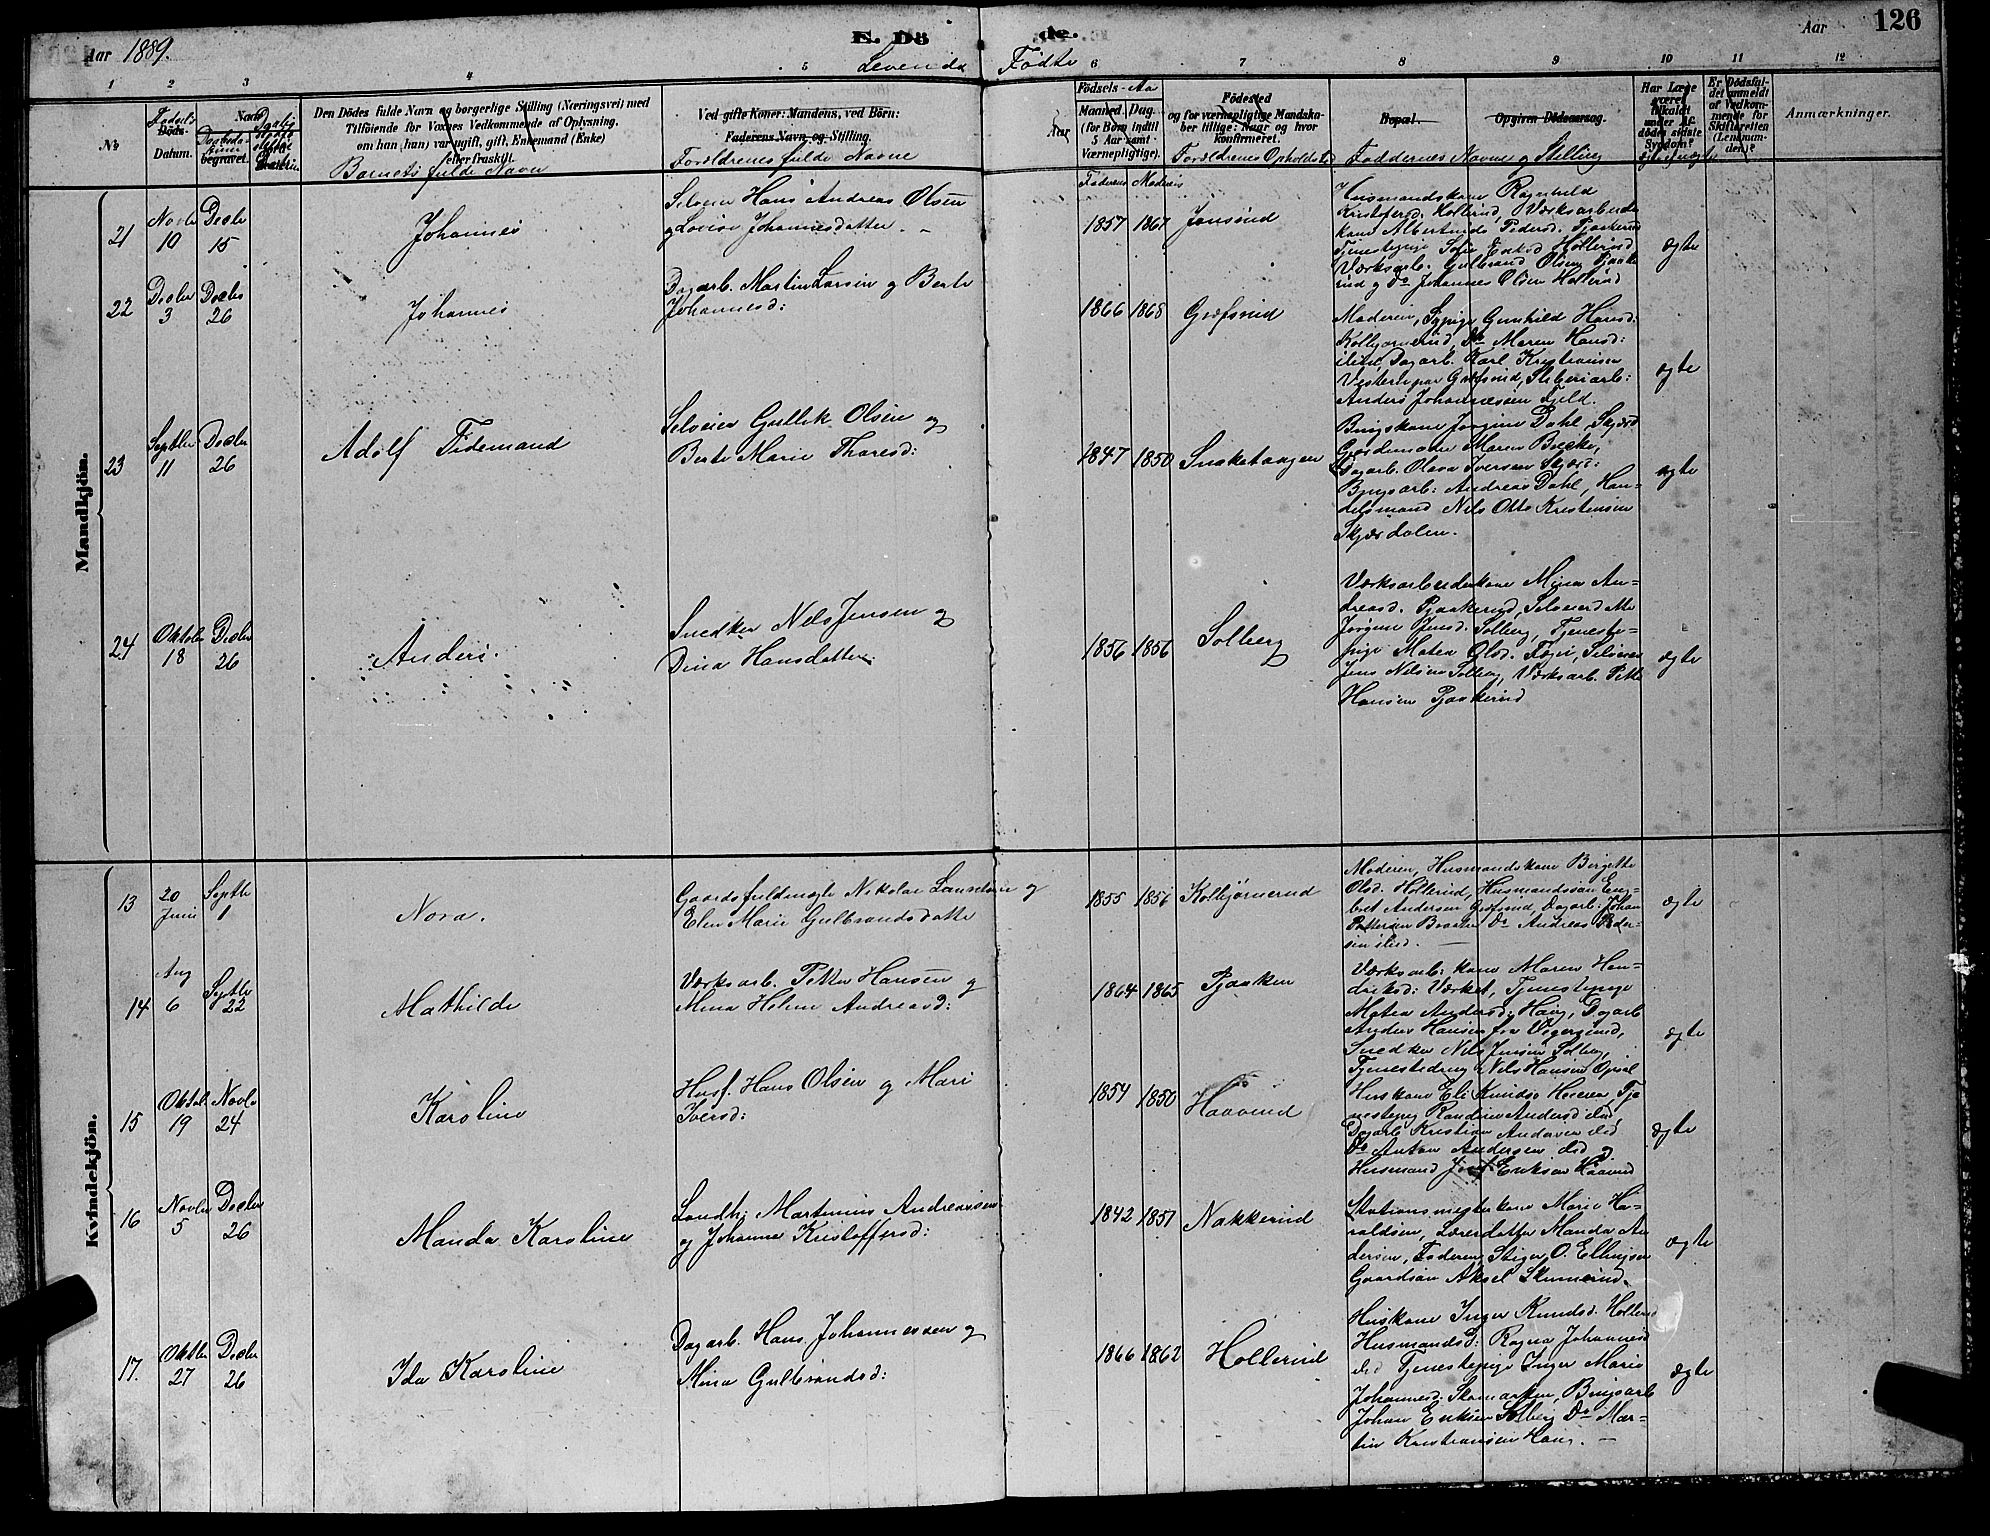 Aar 1889.
E. Dö de.
Levende Fødte
Aar
126
1 2 3 4 5 6 7 8 9 10 11 12
No
Fødsels-
Döds-
Datum.
Daabsda-
begravet.
Den Dödes fulde Navn og borgerlige Stilling (Næringsvei) med
Tilföiende for Voxnes Vedkommende af Oplysning,
om han (hun) var ugift, gift, Enkemand (Enke)
eller fraskilt.
Barnets fulde Navn
Ved gifte Koner: Mandens, ved Börn:
Faderens Navn og Stilling.
Forældrenes fulde Navne
Fødsels- Aar
Maaned Dag
(for Börn indtil
5 Aar samt
Værnepligtige).
Födested
og for værnepligtige Mandska-
ber tillige: Naar og hvor
konfirmeret.
Forældrenes Opholdsted
Bopæl.
Opgiven Dödsaarsag.
Faddernes Navne og Stilling
Har Læge
været
tilkaldt
under af-
dödes sidste
Sygdom?
Er Dödsfal-
det anmeldt
af Vedkom-
mende for
Skifteretten
(Lensman-
den)?
Anmærkninger.
Faderens Moderens
Mandkjön.
21
Novbr Decbr
10 15
Johannes
Selveier Hans Andreas Olsen
og Lovise Johannesdatter. -
1857 1867
Jonsrud
Husmandskone Ragnhild
Kristofersd. Hollerud, Værksarbeider
kone Albertine Pedersd. Pjaakerud
Tjenestepige Sofie Eriksd Hollerud
Værksarb. Gulbrand Olsen Pjaake
rud og Do Johannes Olsen Hollerud
ægte
22
Decbr Decbr
3 26
Johannes
Dagarb. Martin Larsen og Berte
Johannesd:
1866 1868
Græfsrud
Moderen, Sypige Gunhild Hansd:
Kolbjørnerud, Do Maren Hansd:
Dagarb. Karl Kristiansen
Græfsrud, Sliberiarb:
Anders Johannessen Fjeld.
ægte
23
Septbr Decbr
11 26
Adolf Tidemand
Selveier Gullik Olsen og
Berte Marie Thoresd:
1847 1850
Snekehaugen
Brugskone Jørgine Dahl, Skjærd
Gaardmands Maren Brække,
Dagarb. Olava Iversen Skjærd:
Brugsarb: Andreas Dahl, Han-
delsmand Nils Otto Kristensen
Skjærdalen.
ægte
24
Oktober Decbr
18 26
Anders.
Snedker Nils Jensen og
Dina Hansdatter
1856 1856
Solberg
Værksarbeiderkone Mina An-
dreasd. Pjaakerud, Selveierdatter
Jørgine Jensd. Solberg, Tjeneste-
pige Matea Olsd. Fager, Selveier
Jens Nilsen Solberg, Værksarb. Petter
Hansen Pjaakerud
ægte
Kvindekjön.
13
20 Septbr
Juni 1
Nora.
Gaardsfuldmægtig Nikolai Lauritsen og
Elen Marie Gulbrandsdatter
1855 1856
Kolbjørnerud
Moderen, Husmandskone Birgitte
Olsd. Hollerud, Husmandssøn Eng-
bret Andersen Græfsrud, Dagarb. Johan
Pettersen Braaten Do Andreas Peder-
sen ibid. -
ægte
14
Aug Septbr
6 22
Mathilde
Værksarb. Petter Hansen og
Mina Helene Andreasd:
1864 1865
Pjaaken
Værksarb: kone Maren Hen-
driksd: Værket, Tjenestepige
Matea Andersd. Haug, Dagarb
Anders Hansen fra Vegersrud,
Snedker Nils Jensen Solberg,
Tjenestedreng Nils Hansen Opsal
ægte
15
Oktob Novbr
19 24
Karoline
Husf. Hans Olsen og Mari
Iversd:
1854 1850
Haavrud
Huskone Eli Knudsd Heieren, Tje-
nestepige Randine Andersd ibid
Dagarb Kristian Andersen ibid
Do Anton Andersen ibid og
Husmand Josef Eriksen Haavrud
ægte
16
Novbr Decbr
5 26
Manda Karoline
Landh: Martinius Andreassen
og Johanne Kristoffersd:
1842 1857
Nakkerud
Stationsmesterkone Marie Ha-
raldsen, Lærerdatter Manda An-
dersen, Faderen, Stiger O. Ellingsen
Gaardsøn Aksel Skinnerud.
ægte
17.
Oktbr Decbr
27 26
Ida Karoline
Dagarb. Hans Johannessen og
Mina Gulbrandsd:
1866 1862
Hollerud
Huskone Inger Knudsd. Hollerud
Husmandsd: Ragna Johannesd
ibd Tjenestepige Inger Marie
Johannesd. Skamarken, Brugsarb
Johan Eriksen Solberg Do Mar-
tin Kristiansen Haug. -
ægte